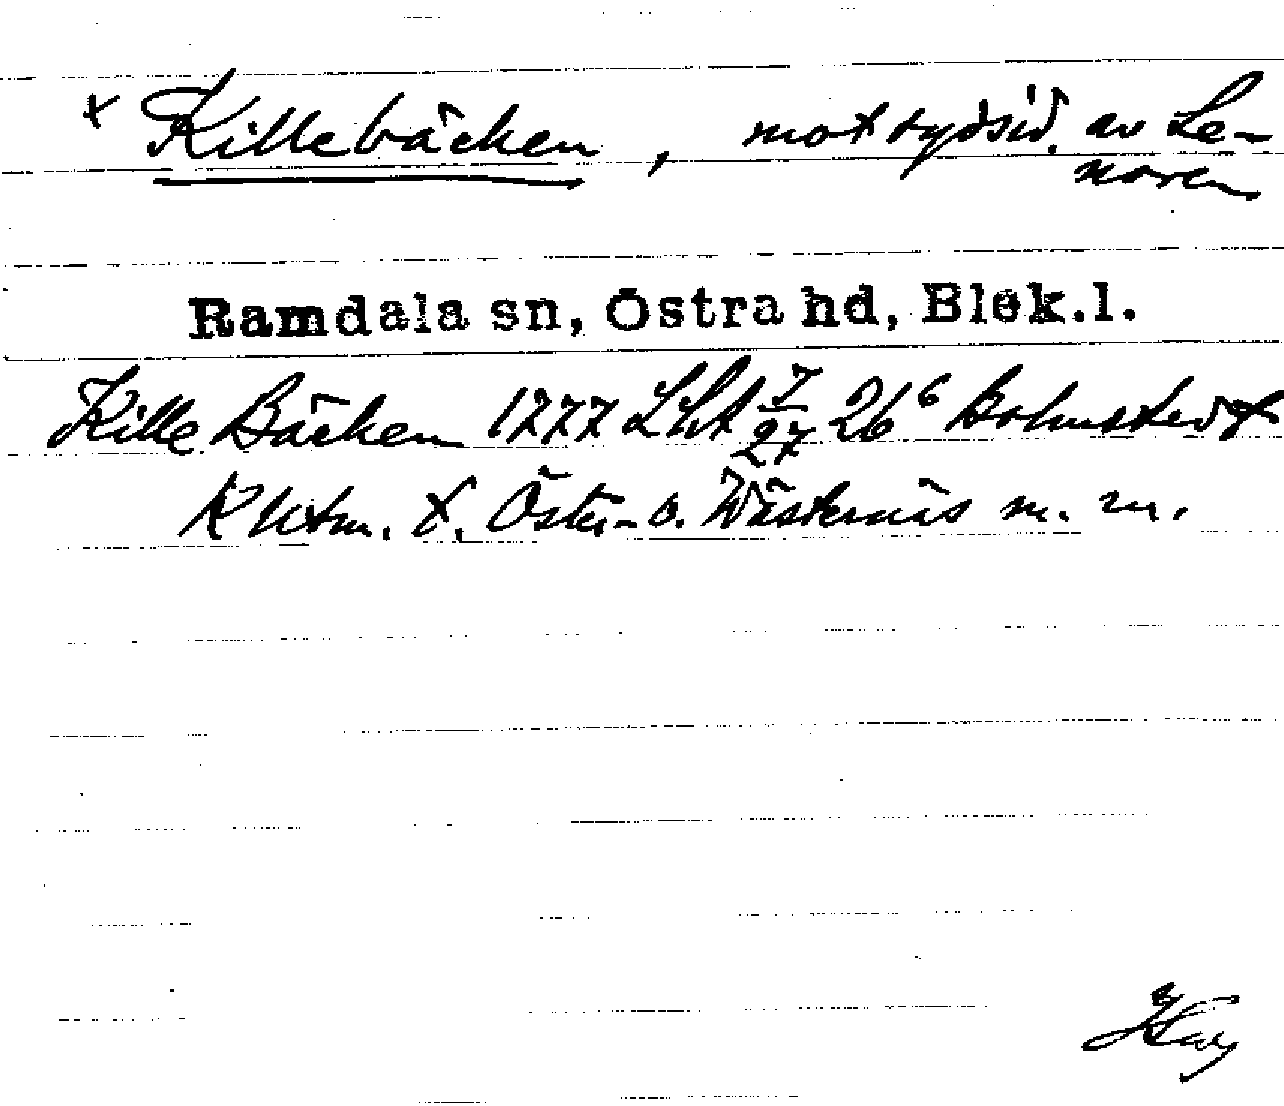 x Killebäcken, mot sydsid. av Le-
noren
Ramdala sn, Östra hd, Blek.l.
Kille Bäcken 1777 LHA 7/27 26⁶ Bohmstedt
K Utm. t. Öster- o. Wästernäs m. m.